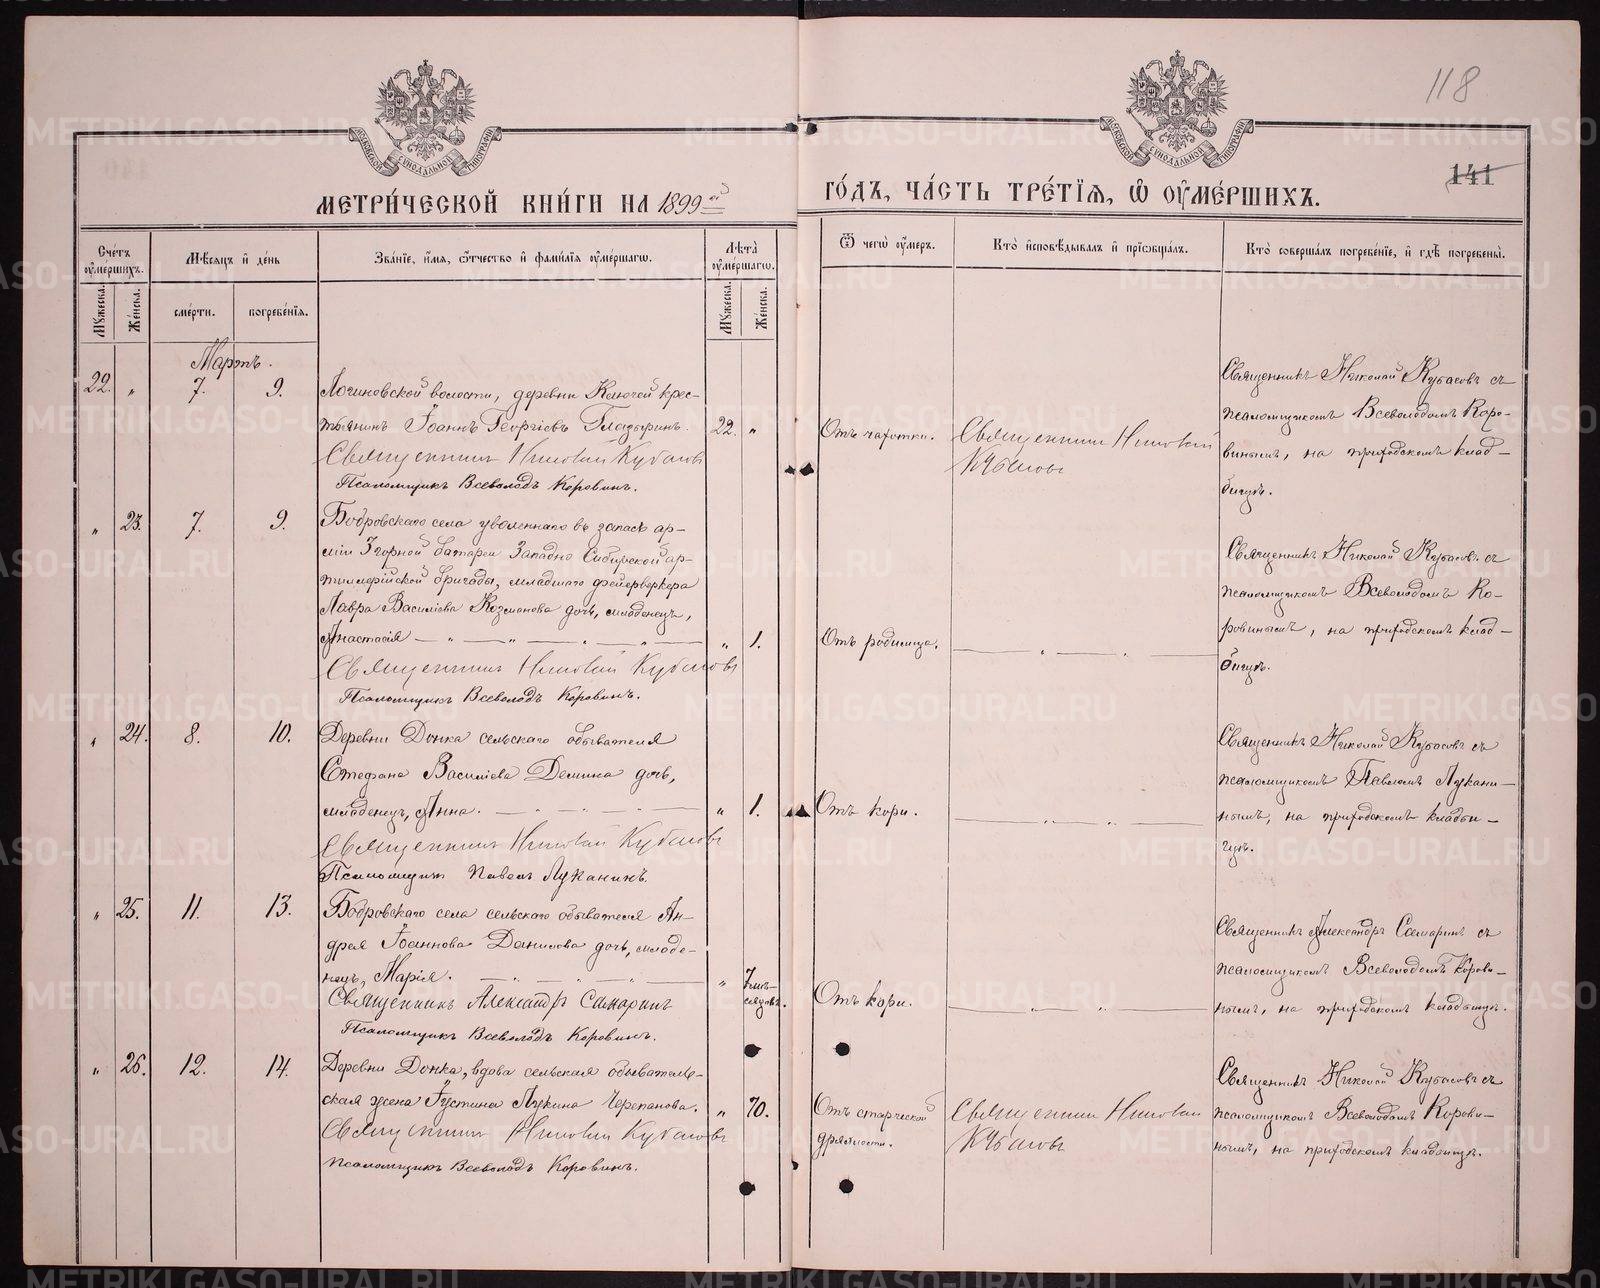 118
141
МЕТРИЧЕСКОЙ КНИГИ НА 1899й
ГОДЪ, ЧАСТЬ ТРЕТІЯ, Ѿ ОУМЕРШИХЪ.
Счетъ оумершихъ.
Мѣсяцъ и день
Званіе, имя, отчество и фамилія оумершагѡ.
Лѣта оумершагѡ.
Ѿ чегѡ оумеръ.
Кто исповѣдывалъ и пріобщалъ.
Кто совершалъ погребеніе, и гдѣ погребены.
Мужеска.
Женска.
смерти.
погребенія.
Мужеска.
Женска.
Мартъ.
22. „ 7. 9.
Логиновской волости, деревни Ключей крес-
тьянинъ Іоаннъ Георгіевъ Глазыринъ. 22. „
Священникъ Николай Кубасовъ
Псаломщикъ Всеволодъ Коровинъ.
Отъ чахотки.
Священникъ Николай
Кубасовъ
Священникъ Николай Кубасовъ съ
псаломщикомъ Всеволодомъ Коро-
винымъ, на приходскомъ клад-
бищѣ.
„ 23. 7. 9.
Бобровскаго села уволеннаго въ запасъ ар-
міи 3 горной батареи Западно Сибирской ар-
тиллерійской бригады, младшаго фейерверкера
Лавра Василіева Козманова дочь, младенецъ,
Анастасія — „ — „ — „ — „ — „ 1.
Священникъ Николай Кубасовъ
Псаломщикъ Всеволодъ Коровинъ.
Отъ родимца.
Священникъ Николай Кубасовъ съ
псаломщикомъ Всеволодомъ Ко-
ровинымъ, на приходскомъ клад-
бищѣ.
„ 24. 8. 10.
Деревни Донка сельскаго обывателя
Стефана Василіева Демина дочь,
младенецъ, Анна. „ 1.
Священникъ Николай Кубасовъ
Псаломщикъ Павелъ Луканинъ.
Отъ кори.
Священникъ Николай Кубасовъ съ
псаломщикомъ Павломъ Лукани-
нымъ, на приходскомъ кладби-
щѣ.
„ 25. 11. 13.
Бобровскаго села сельскаго обывателя Ан-
дрея Іоаннова Данилова дочь, младе-
нецъ, Марія. „ 7 мѣ-
сяцовъ.
Священникъ Александръ Самаринъ
Псаломщикъ Всеволодъ Коровинъ.
Отъ кори.
Священникъ Александръ Самаринъ съ
псаломщикомъ Всеволодомъ Корови-
нымъ, на приходскомъ кладбищѣ.
„ 26. 12. 14.
Деревни Донка, вдова сельская обыватель-
ская жена Іустина Лукина Черепанова. „ 70.
Священникъ Николай Кубасовъ
Псаломщикъ Всеволодъ Коровинъ.
Отъ старческой
дряхлости.
Священникъ Николай
Кубасовъ
Священникъ Николай Кубасовъ съ
псаломщикомъ Всеволодомъ Корови-
нымъ, на приходскомъ кладбищѣ.
METRIKI.GASO-URAL.RU